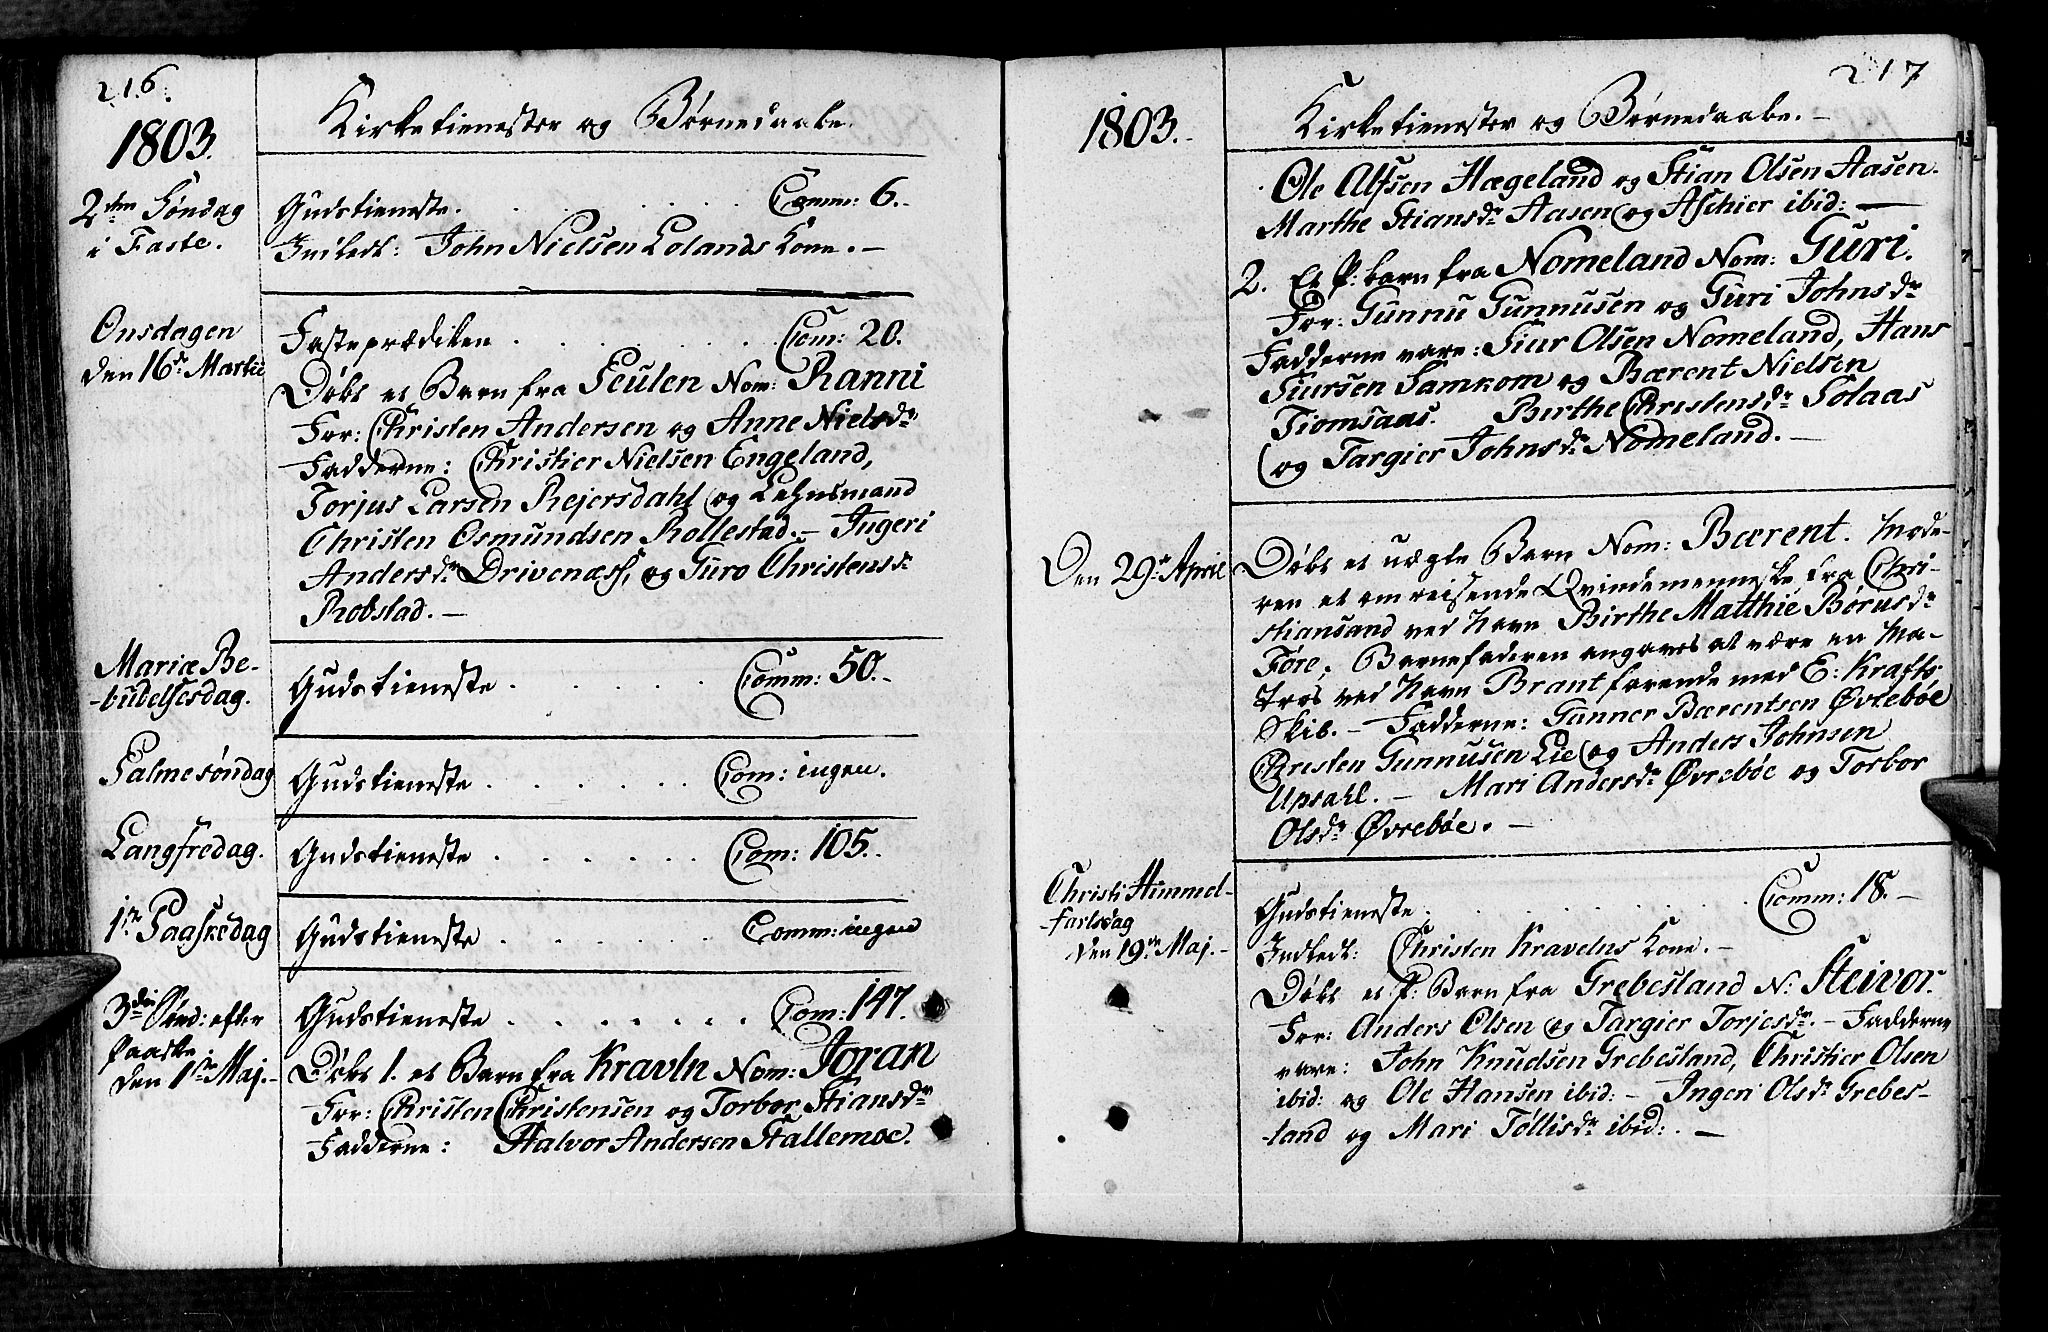 216.
1803.
Kirketienester og Børnedaabe.
2den Søndag
i Faste.
Gudstieneste. . . . . . . . Comm: 6.-
Indledt: John Nielsen Lolands Kone. -
Onsdagen
den 16de Martii
Fasteprædiken . . . . . . . Com: 20.
Døbt et Barn fra Feulen Nom: Ranni
For: Christen Andersen og Anne Nielsdr
Fadderne: Christier Nielsen Engeland,
Torjus Larsen Rejersdahl og Lehnsmand
Christen Osmundsen Rollestad. - Ingeri
Andersdr Drivenæss, og Guro Christensdr
Robstad. -
Mariæ Be-
-budelsesdag.
Gudstieneste . . . . . . Comm: 50.-
Palmesøndag
Gudstieneste . . . . . . Com: ingen.
Langfredag.
Gudstieneste . . . . . . Com: 105.-
1ste Paaskedag
Gudstieneste . . . . . . Comm: ingen
3die Sønd: efter
Paaske.
den 1ste Maj.-
Gudstieneste . . . . . . . Com: 147.
Døbt 1. et Barn fra Kravln Nom: Joran
For: Christen Christensen og Torbor Stiansdr
Fadderne: Halvor Andersen Stallemoe.
217
1803.-
Kirketienester og Børnedaabe. -
Ole Alfsen Hægeland og Stian Olsen Aasen.
Marthe Stiansdr Aasen og Aschier ibid: -
2. Et P: barn fra Nomeland Nom: Guri.
For: Gunnu Gunnusen og Guri Johnsdr
Fadderne vare: Siur Olsen Nomeland, Hans
Siursen Samkom og Bærent Nielsen
Tiomsaas. Birthe Christensdr Solaas
og Targier Johnsdr Nomeland. -
Den 29de April
Døbt et uægte Barn Nom: Bærent. Mode-
ren et omreisende Qvindemenneske fra Chri-
stiansand ved Navn Birthe Matthie Børusdr
Føre; Barnefaderen angaves at være en Ma-
tros ved Navn Brant farende med E: Krafts
Skib. - Fadderne: Gunner Bærentsen Øvrebøe
Christen Gunnusen Lie og Anders Johnsen
Upsahl. - Mari Andersdr Øvrebøe og Torbor
Olsdr Øvrebøe. -
Christi Himmel-
-fartsdag
den 19de Maj. -
Gudstieneste . . . . . . . Comm: 18. -
Indledt: Christen Kravelns Kone. -
Døbt et P: Barn fra Grebesland N: Steivor.
For: Anders Olsen og Targier Torjesdr. - Fadderne
vare: John Knudsen Grebesland, Christier Olsen
ibid: og Ole Hansen ibid: - Ingeri Olsdr Grebes-
-land og Mari Tøllisdr ibid: . -